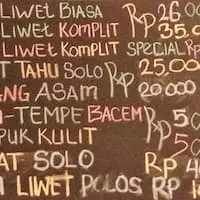 LIWET BIASA RP 26.00
LIWET KOMPLIT 35.0
LIWET KOMPLIT SPECIAL RP
TAHU SOLO RP 25,000
ASAM RP 20.000
-TEMPE BACEM RP 5
KULIT 5
SOLO RP 4
LIWET POLOS RP